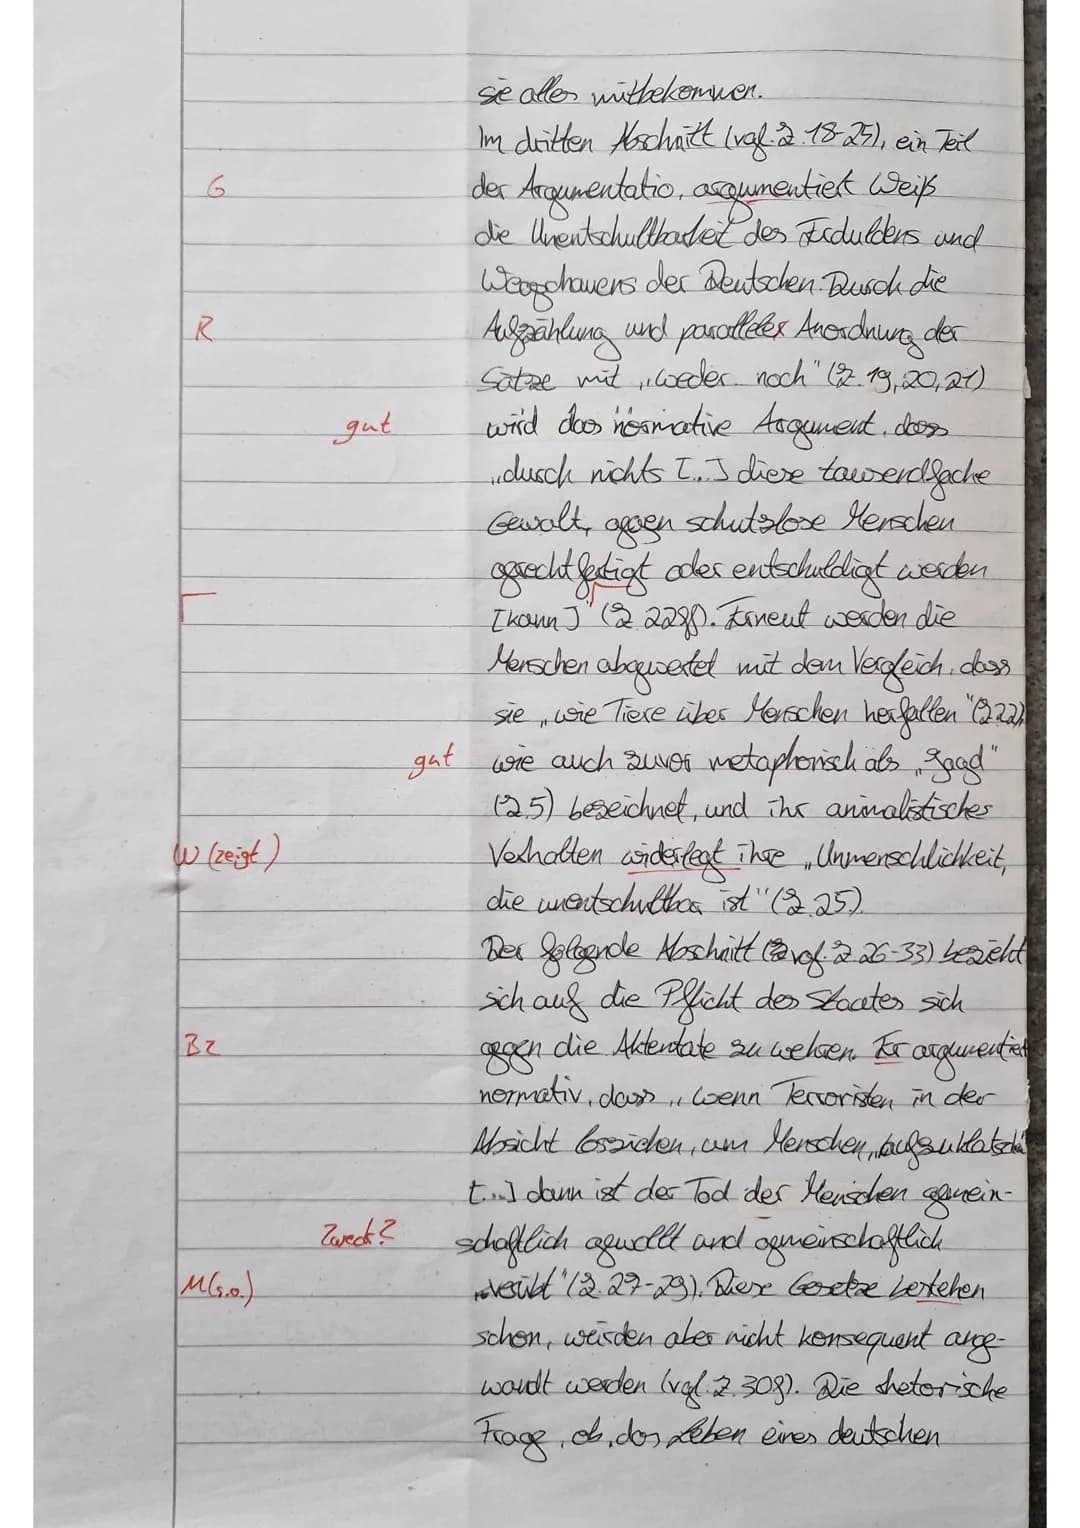 sie alles mitbekommen.
Im dritten Abschnitt (vgl. Z. 18-25), ein Teil
G der Argumentatio, argumentiert Weiß
die Unentschultbarkeit des Erduldens und
Wegschauens der Deutschen. Durch die
R Aufzählung und paralleler Anordnung der
Sätze mit „weder noch" (Z. 19, 20, 21)
gut wird das normative Argument, dass
„durch nichts [...] diese tausendfache
Gewalt, gegen schutzlose Menschen
gerechtfertigt oder entschuldigt werden
Γ [kann]" (Z. 22ff). Erneut werden die
Menschen abgewertet mit dem Vergleich, dass
sie „wie Tiere über Menschen herfallen" (Z.22),
gut wie auch zuvor metaphorisch als „Jagd"
(Z.5) bezeichnet, und ihr animalistisches
W (zeigt) Verhalten widerlegt ihre „Unmenschlichkeit,
die unentschultbar ist" (Z.25).
Der folgende Abschnitt (vgl. Z 26-33) bezieht
sich auf die Pflicht des Staates sich
Bz gegen die Aktentate zu wehren. Er argumentiert
normativ, dass „wenn Terroristen in der
Absicht losziehen, um Menschen „aufzuklatschen"
[...] dann ist der Tod der Menschen gemein-
Zweck? schaftlich gewollt und gemeinschaftlich
M(s.o.) verübt" (Z. 27-29). Diese Gesetze bestehen
schon, würden aber nicht konsequent ange-
wandt werden (vgl. Z. 30f). Die rhetorische
Frage, ob „das Leben eines deutschen